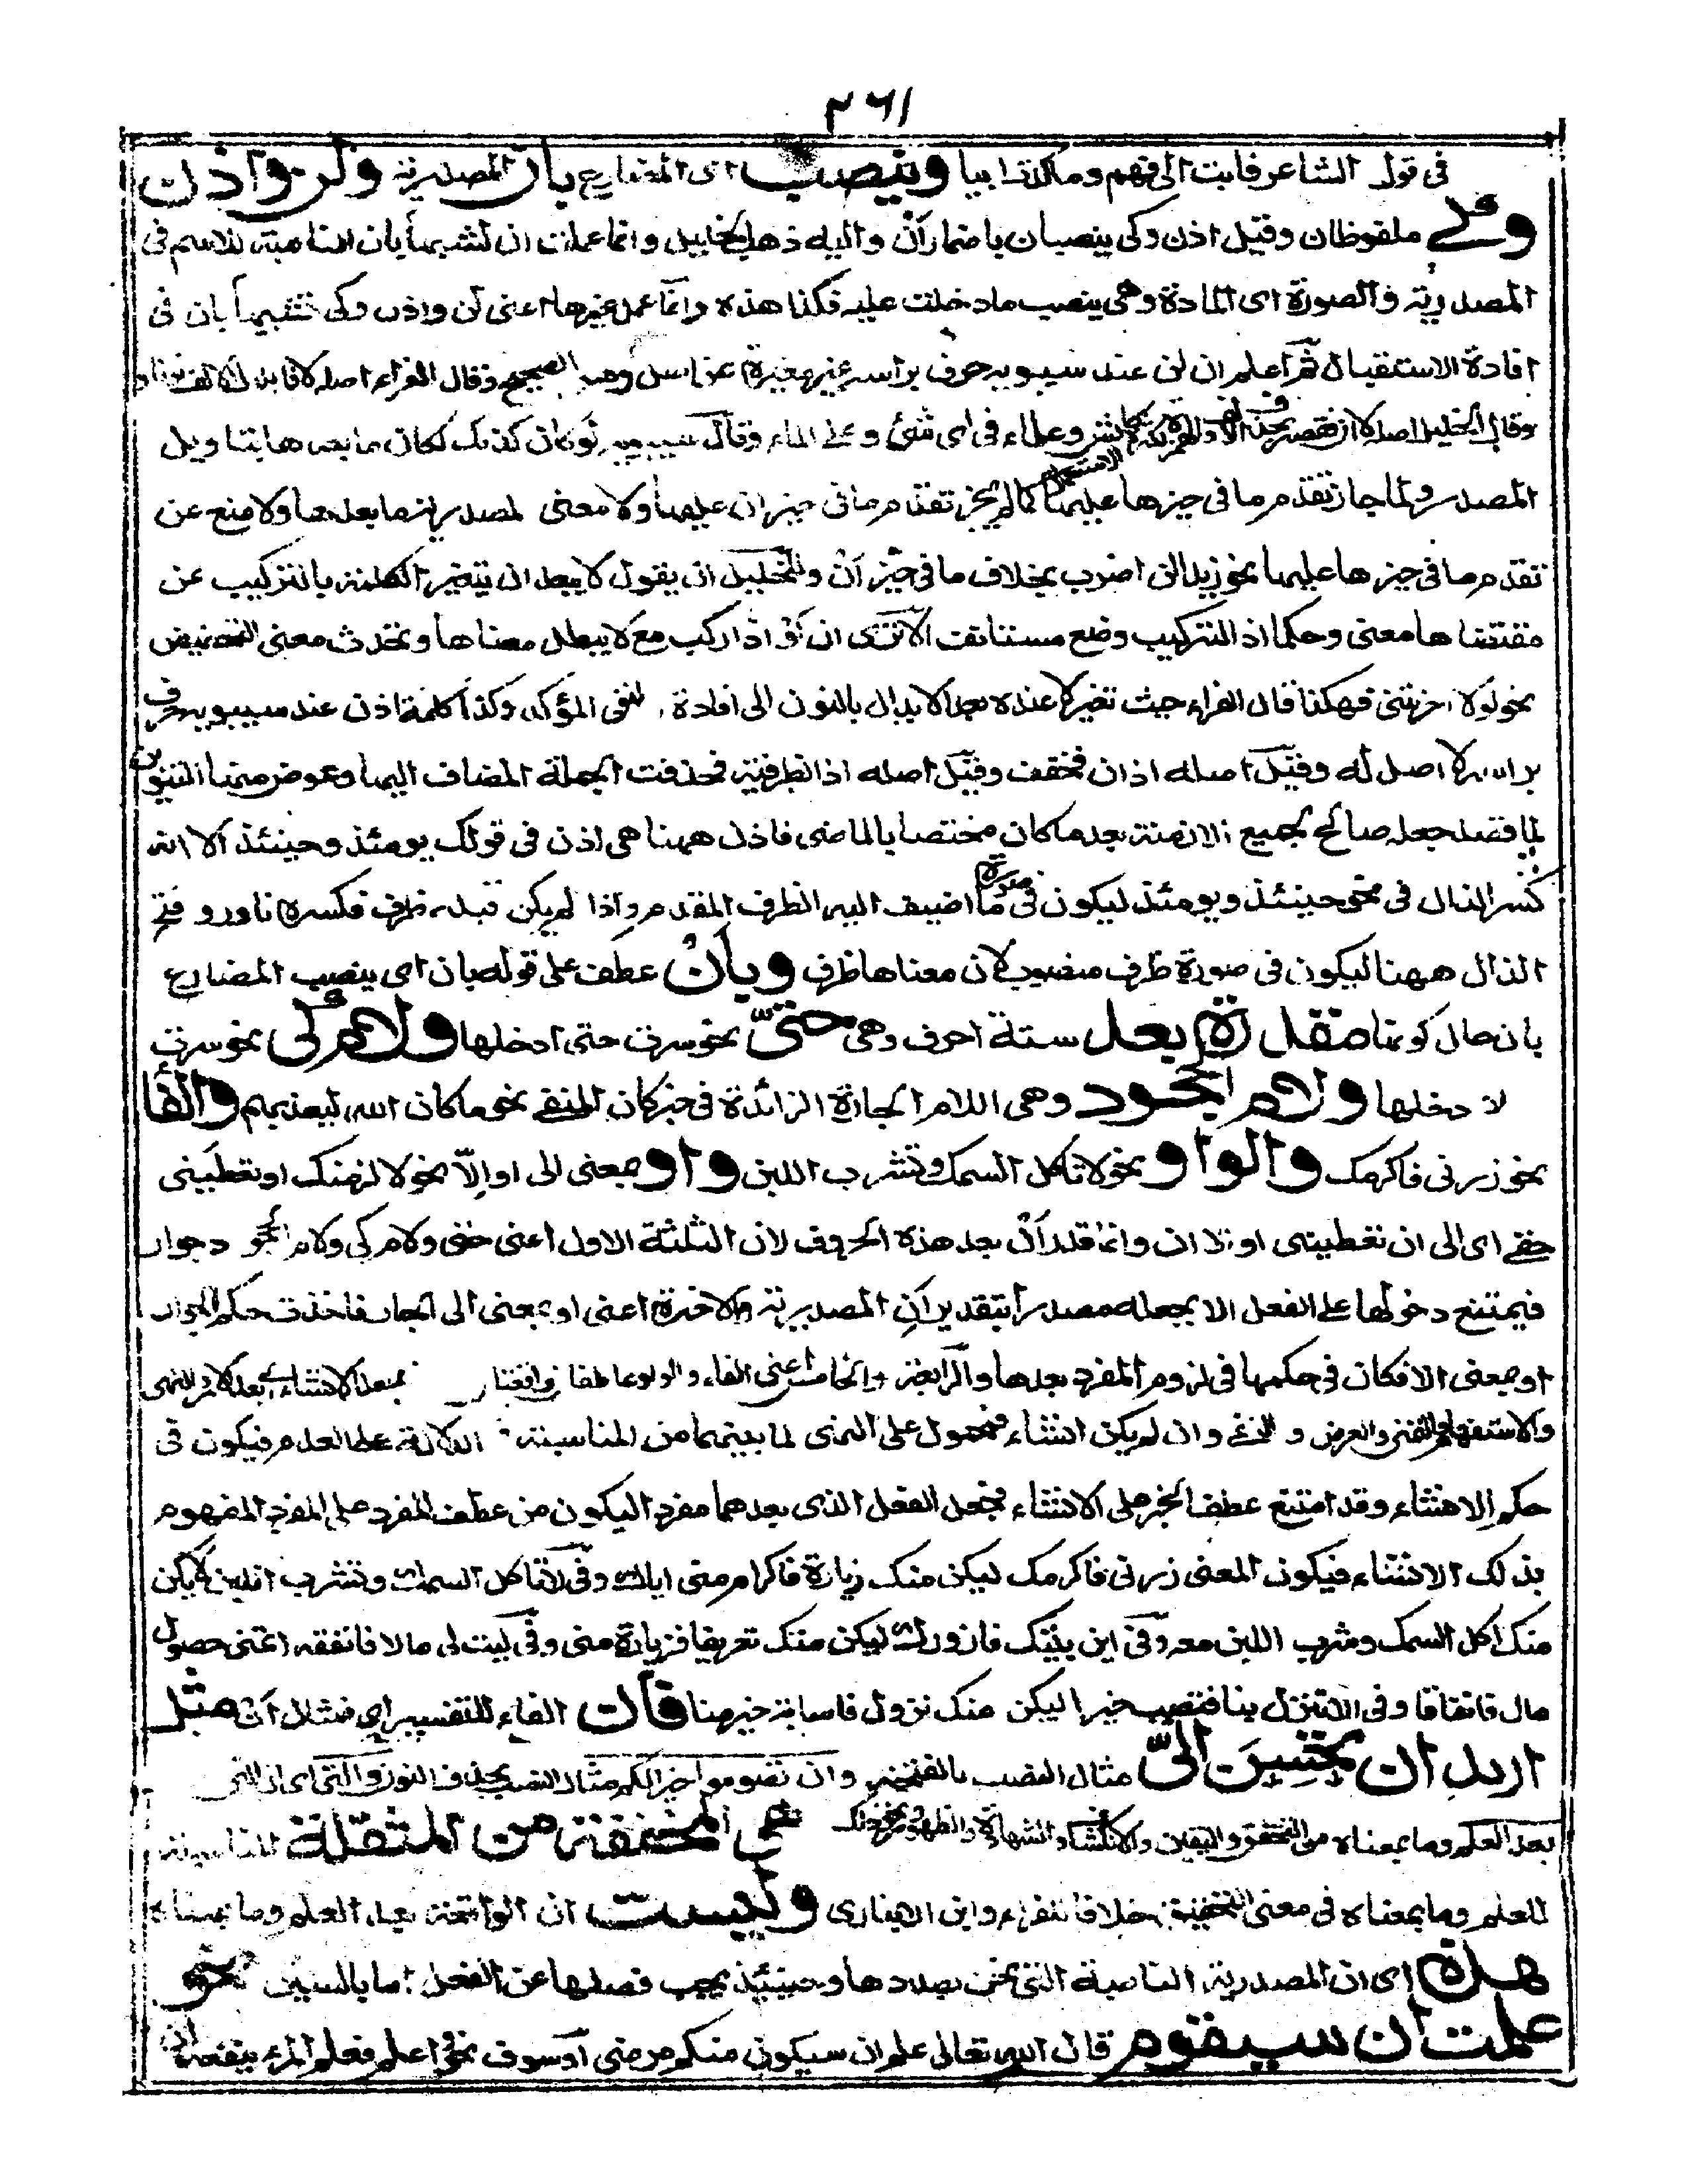 ٢٦١
في قول الشاعر فابت الى فهم وما كدت ايبا وينصب اى المضارع بان المصدرية ولن واذن
وكي ملفوظان وقيل اذن وكى ينصبان باضماران واليه ذهب الخليل وانما عملت ان لشبهها بان الناصبة للاسم فى
المصدرية والصورة اى المادة وهى ينصب ما دخلت عليه فكذا هذه وانما عمل غيرها اعنى لن واذن وكى تشبيها بان فى
افادة الاستقبال ثم اعلم ان لن عند سيبويه حرف براسه غير مغيرة عن اصل وهو الصحيح وقال الفراء اصله لا فابدل الالف نونا
وقال الخليل اصله لا ان فقصر بحذف الالف والهمزة لكثرة الاستعمال كايش وعلماء فى اى شئ وعلى الماء وقال سيبويه لو كان كذلك لكان ما بعدها بتاويل
المصدر ولما جاز تقدم ما فى حيزها عليها كما لم يجز تقدم ما فى حيز ان عليها ولا معنى لمصدرية ما بعدها ولا منع عن
تقدم ما فى حيزها عليها نحو زيدا لن اضرب بخلاف ما فى حيز ان وللخليل ان يقول لا يبعد ان يتغير الكلمة بالتركيب عن
مقتضاها معنى وحكما اذ التركيب وضع مستانف الا ترى ان لو اذا ركب مع لا يبطل معناها ويحدث معنى التحضيض
نحو لولا اخرتنى فهكذا قال الفراء حيث تغير لا عنده بعد الابدال بالنون الى افادة النفى المؤكد وكذا كلمة اذن عند سيبويه حرف
براسه لا اصل له وقيل اصله اذ ان فخفف وقيل اصله اذ الظرفية فحذفت الجملة المضاف اليها وعوض منها التنوين
لما قصد جعله صالح لجميع الازمنة بعد ما كان مختصا بالماضى فاذن ههنا هى اذن فى قولك يومئذ وحينئذ الا انه
كسر الذال فى نحو حينئذ ويومئذ ليكون فى صورة ما اضيف اليه الظرف المقدم واذا لم يكن قبله ظرف فكسره نادر و فتح
الذال ههنا ليكون فى صورة ظرف منصوب لان معناها ظرف وبان عطف على قوله بان اى ينصب المضارع
بان حال كونها مقدرة بعد ستة احرف وهى حتى نحو سرت حتى ادخلها ولام كى نحو سرت
لا دخلها ولام الجحود وهى اللام الجارة الزائدة فى خبر كان المنفى نحو ما كان الله ليعذبهم والفا
نحو زرنى فاكرمك والواو نحو لا تاكل السمك وتشرب اللبن واو بمعنى الى او الا نحو لالزمنك او تعطينى
حقى اى الى ان تعطينى او الا ان وانما قدر ان بعد هذه الحروف لان الثلثة الاول اعنى حتى ولام كى ولام الجحود جوار
فيمتنع دخولها على الفعل الا بجعله مصدرا بتقدير ان المصدرية والاخيرة اعنى او بمعنى الى الجار فاخذت حكم الجوار
او بمعنى الا فكان فى حكمها فى لزوم المفرد بعدها والرابعة والخامسة اعنى الفاء والواو عاطفا واقعتان بعد الانشاء اى بعد الامر والنهى
والاستفهام والتمنى والعرض و النفى وان لم يكن انشاء فمحمول على النهى لما بينهما من المناسبة الدلالة على العدم فيكون فى
حكم الانشاء وقد امتنع عطف الخبر على الانشاء فجعل الفعل الذى بعدهما مفردا ليكون من عطف المفرد على المفرد المفهوم
بذلك الانشاء فيكون المعنى زرنى فاكرمك ليكن منك زيارة فاكرام منى اياك وفى لا تاكل السمك وتشرب اللبن لا يكن
منك اكل السمك وشرب اللبن معه وفى اين بيتك فازورك ليكن منك تعريفا فزيارة منى وفى ليت لى مالا فانفقه اتمنى حصول
مال فانفاقا وفى الا تنزل بنا فتصيب خيرا ليكن منك نزول فاصابة خير منا فان الفاء للتفسير اى فمثال ان مثل
اريد ان تحسن الى مثال النصب بالفتحة وان تصوموا خير لكم مثال النصب بحذف النون والتى اى ان التى
بعد العلم وما بمعناه من التحقق واليقين والانكشاف والشهادة والظهور ونحو ذلك هى المخففة من المثقلة للمناسبة
للعلم وما بمعناه فى معنى التحقيق خلافا للفراء وابن الانبارى وليست ان الواقعة بعد العلم وما بمعناه
هذه اى ان المصدرية الناصبة التى نحن بصددها وحينئذ يجب فصلها عن الفعل اما بالسين نحو
علمت ان سيقوم قال الله تعالى علم ان سيكون منكم مرضى او سوف نحو واعلم فعلم المرء ينفعه ان